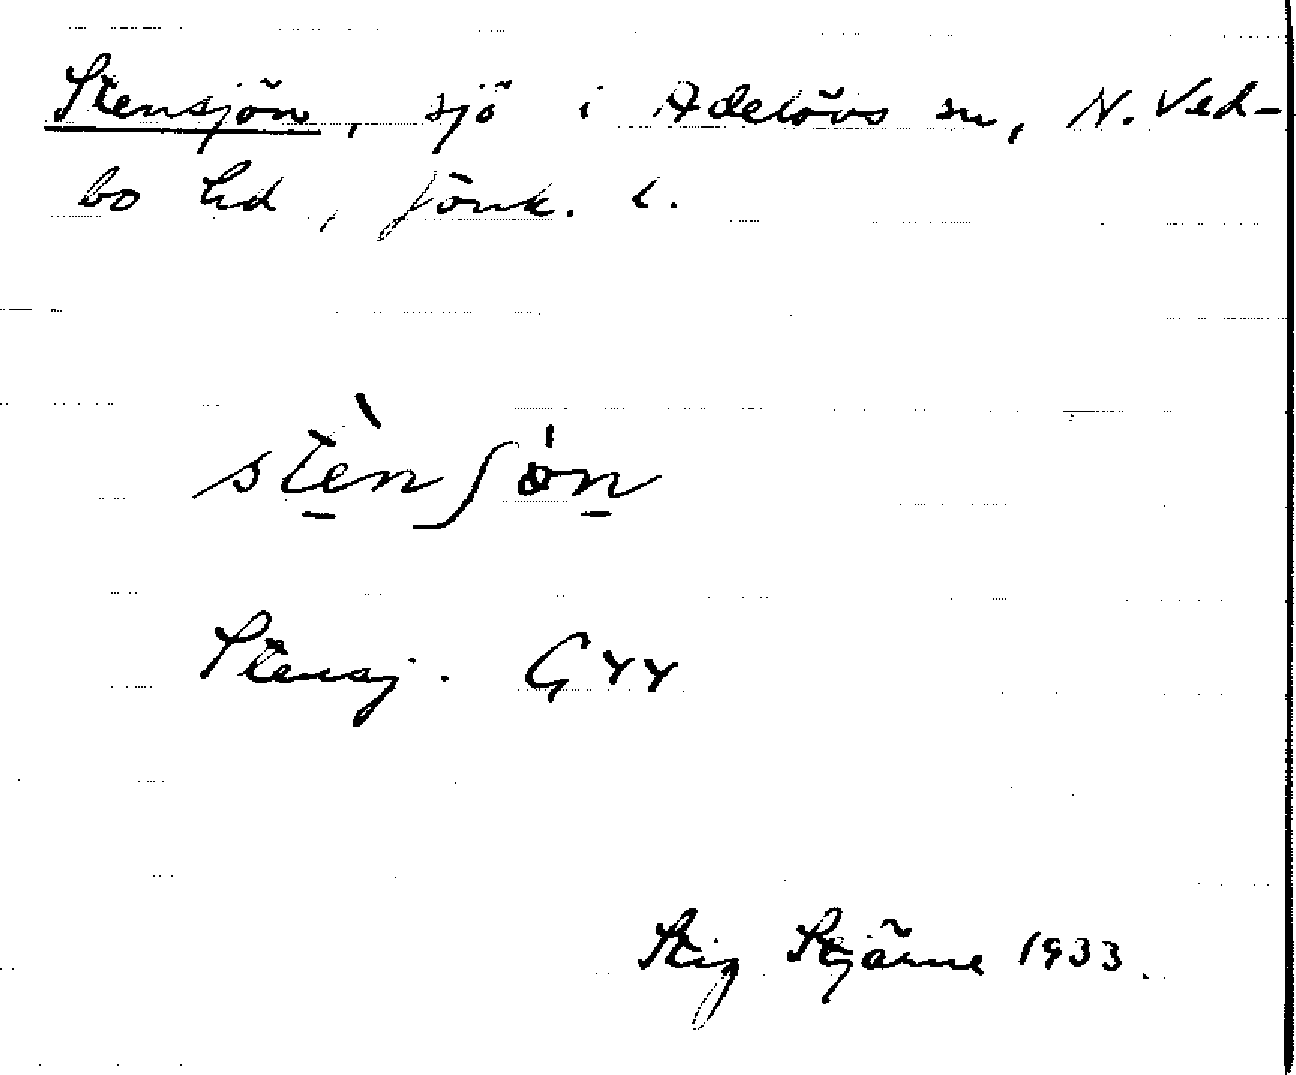 Stensjön, sjö i Adelövs sn, N. Ved-
bo hd, Jönk. l.
stènʃön
Stensj. G44
Stig Stjärne 1933.